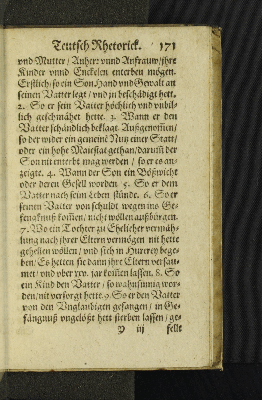 Teutsch Rhetorick. 171
vnd Mutter / Anherr vnnd Anfrauw / jhre
Kinder vnnd Enckelen enterben mögen.
Erstlich / so ein Son Hand vnd Gewalt an
seinen Vatter legt / vnd jn beschädigt hett.
2. So er sein Vatter höchlich vnd vnbil-
lich geschmähet hette. 3. Wann er den
Vatter schändlich beklagt / Außgenom̃en /
so der wider ein gemeinẽ Nutz einer Statt /
oder ein hohe Maiestat gethan / darum̃ der
Son nit enterbt mag werden / so er es an-
zeigte. 4. Wann der Son ein Bößwicht
oder deren Gesell worden. 5. So er dem
Vatter nach seim Leben stünde. 6. So er
seinen Vatter von schuldt wegen ins Ge-
fencknuß kom̃en / nicht wöllen außbürgen.
7. Wo ein Tochter zu Ehelicher vermäh-
lung nach jhrer Eltern vermögen nit hette
gehelen wöllen / vnd sich in Hurerey bege-
ben / Es hetten sie dann jhre Eltern versau-
met / vnd vber xxv. jar kom̃en lassen. 8. So
ein Kind den Vatter / so wahnsinnig wor-
den / nit versorgt hette. 9. So er den Vatter
von den Vnglaubigen gefangen / in Ge-
fängnuß vngelößt hett sterben lassen / ge-
P iij fellt